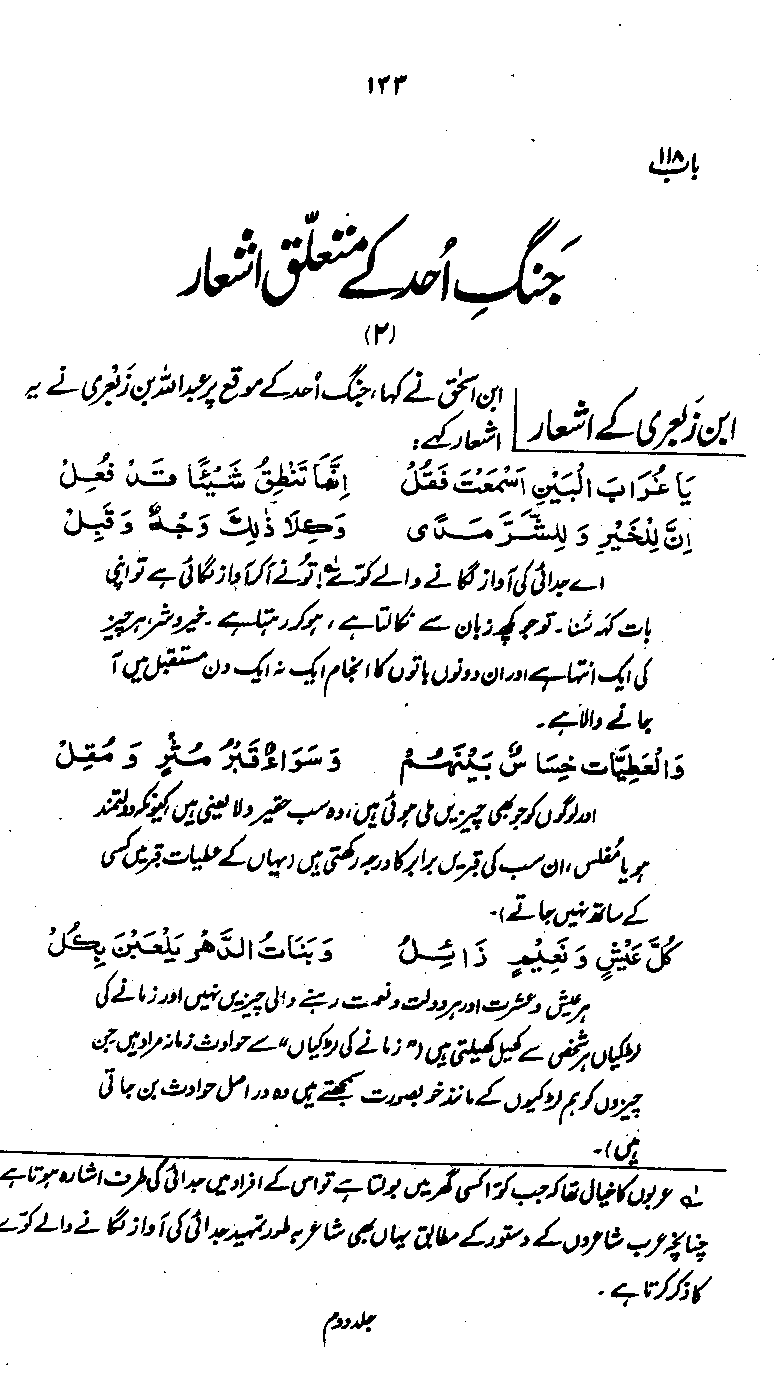 ۱۲۳
باب ۱۱۸
جَنگِ اُحد کے متعلّق اشعار
(۲)
ابن زَبعری کے اشعار
ابن اسحٰق نے کہا، جنگ اُحد کے موقع پر عبداللہ بن زَبَعْری نے یہ
اشعار کہے:
يَا غُرَابَ الْبَيْنِ اَسْمَعْتَ فَقُلْ اِنَّمَا تَنْطِقُ شَيْئًا قَدْ فُعِلْ
اِنَّ لِلْخَيْرِ وَ لِلشَّرِّ مَدًى وَكِلَا ذٰلِكَ وَجْهٌ وَ قَبَلْ
اے جدائی کی آواز لگانے والے کوّے لہ! تُو نے آکر آواز لگائی ہے تو اپنی
بات کہہ سُنا۔ تو جو کچھ زبان سے نکالتا ہے، ہو کر رہتا ہے۔ خیر و شر، ہر چیز
کی ایک انتہا ہے اور ان دونوں باتوں کا انجام ایک نہ ایک دن مستقبل میں آ
جانے والا ہے۔
وَالْعَطِيَّات خِسَاسٌ بَيْنَهُمْ وَ سَوَاءٌ قَبْرُ مُثْرٍ وَ مُقِلْ
اور لوگوں کو جو بھی چیزیں ملی ہوئی ہیں، وہ سب حقیر و لا یعنی ہیں، کیونکہ دولتمند
ہو یا مُفلس، ان سب کی قبریں برابر کا درجہ رکھتی ہیں (یہاں کے عطیات قبر میں کسی
کے ساتھ نہیں جاتے)۔
كُلَّ عَيْشٍ وَ نَعِيْمٍ ذَائِلٌ وَ بَنَاتُ الدَّهْرِ يَلْعَبْنَ بِكُلْ
ہر عیش و عشرت اور ہر دولت و نعمت رہنے والی چیزیں نہیں اور زمانے کی
لڑکیاں ہر شخص سے کھیل کھیلتی ہیں ("زمانے کی لڑکیاں" سے حوادث زمانہ مراد ہیں جن
چیزوں کو ہم لڑکیوں کے مانند خوبصورت سمجھتے ہیں وہ در اصل حوادث بن جاتی
ہیں)۔
لہ عربوں کا خیال تھا کہ جب کوّا کسی گھر میں بولتا ہے تو اس کے افراد میں جدائی کی طرف اشارہ ہوتا ہے
چنانچہ عرب شاعروں کے دستور کے مطابق یہاں بھی شاعر بہ طور تمہید جدائی کی آواز لگانے والے کوّے
کا ذکر کرتا ہے۔
جلد دوم